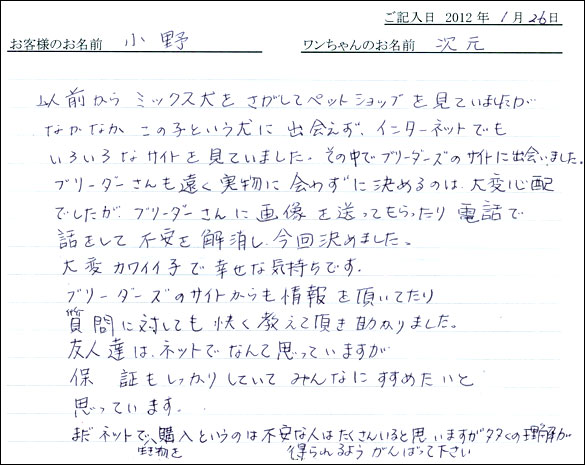 ご記入日 2012年 1月 26日
お客様のお名前 小野 ワンちゃんのお名前 次元
以前から ミックス犬を さがして ペットショップを見ていましたが
なかなか この子という犬に 出会えず、インターネットでも
いろいろなサイトを見ていました。その中でブリーダーズのサイトに出会いました。
ブリーダーさんも遠く実物に会わずに決めるのは、大変心配
でしたが、ブリーダーさんに画像を送ってもらったり 電話で
話をして 不安を解消し、今回決めました。
大変カワイイ子で幸せな気持ちです。
ブリーダーズのサイトからも情報を頂いてたり
質問に対しても快く教えて頂き助かりました。
友人達は、ネットでなんて思っていますが
保証もしっかりしていて みんなにすすめたいと
思っています。
まだネットで、購入というのは不安な人はたくさんいると思いますが多くの理解が
生き物を 得られるよう がんばって下さい